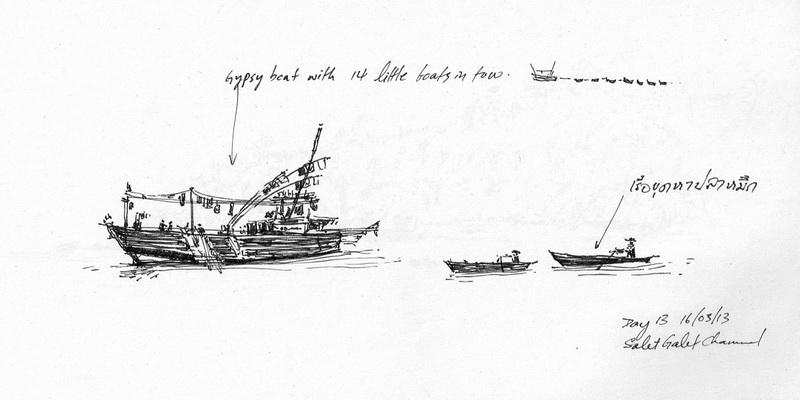 Gypsy boat with 14 little boats in tow.
Day 13 16/03/13
Salet Galet Channel